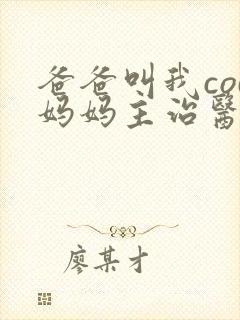 爸爸叫我co
妈妈主治醫
廖某才